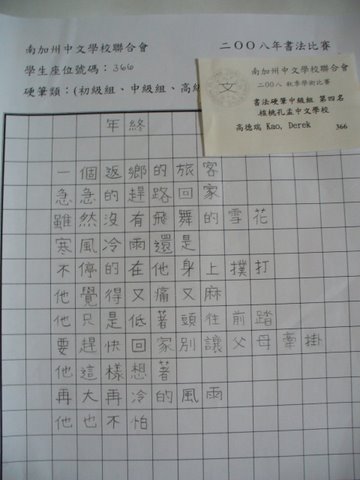 南加州中文學校聯合會
二〇〇八年書法比賽
學生座位號碼：366
硬筆類：(初級組、中級組、高級
南加州中文學校聯合會
二〇〇八 秋季學術比賽
文
書法硬筆中級組 第四名
核桃孔孟中文學校
高德瑞 Kao, Derek
366
年終
一個返鄉的旅客
急急的趕路回家
雖然沒有飛舞的雪花
寒風冷雨還是
不停的在他身上撲打
他覺得又痛又麻
他只是低著頭往前踏
要趕快回家別讓父母牽掛
他這樣想著
再大再冷的風雨
他也不怕